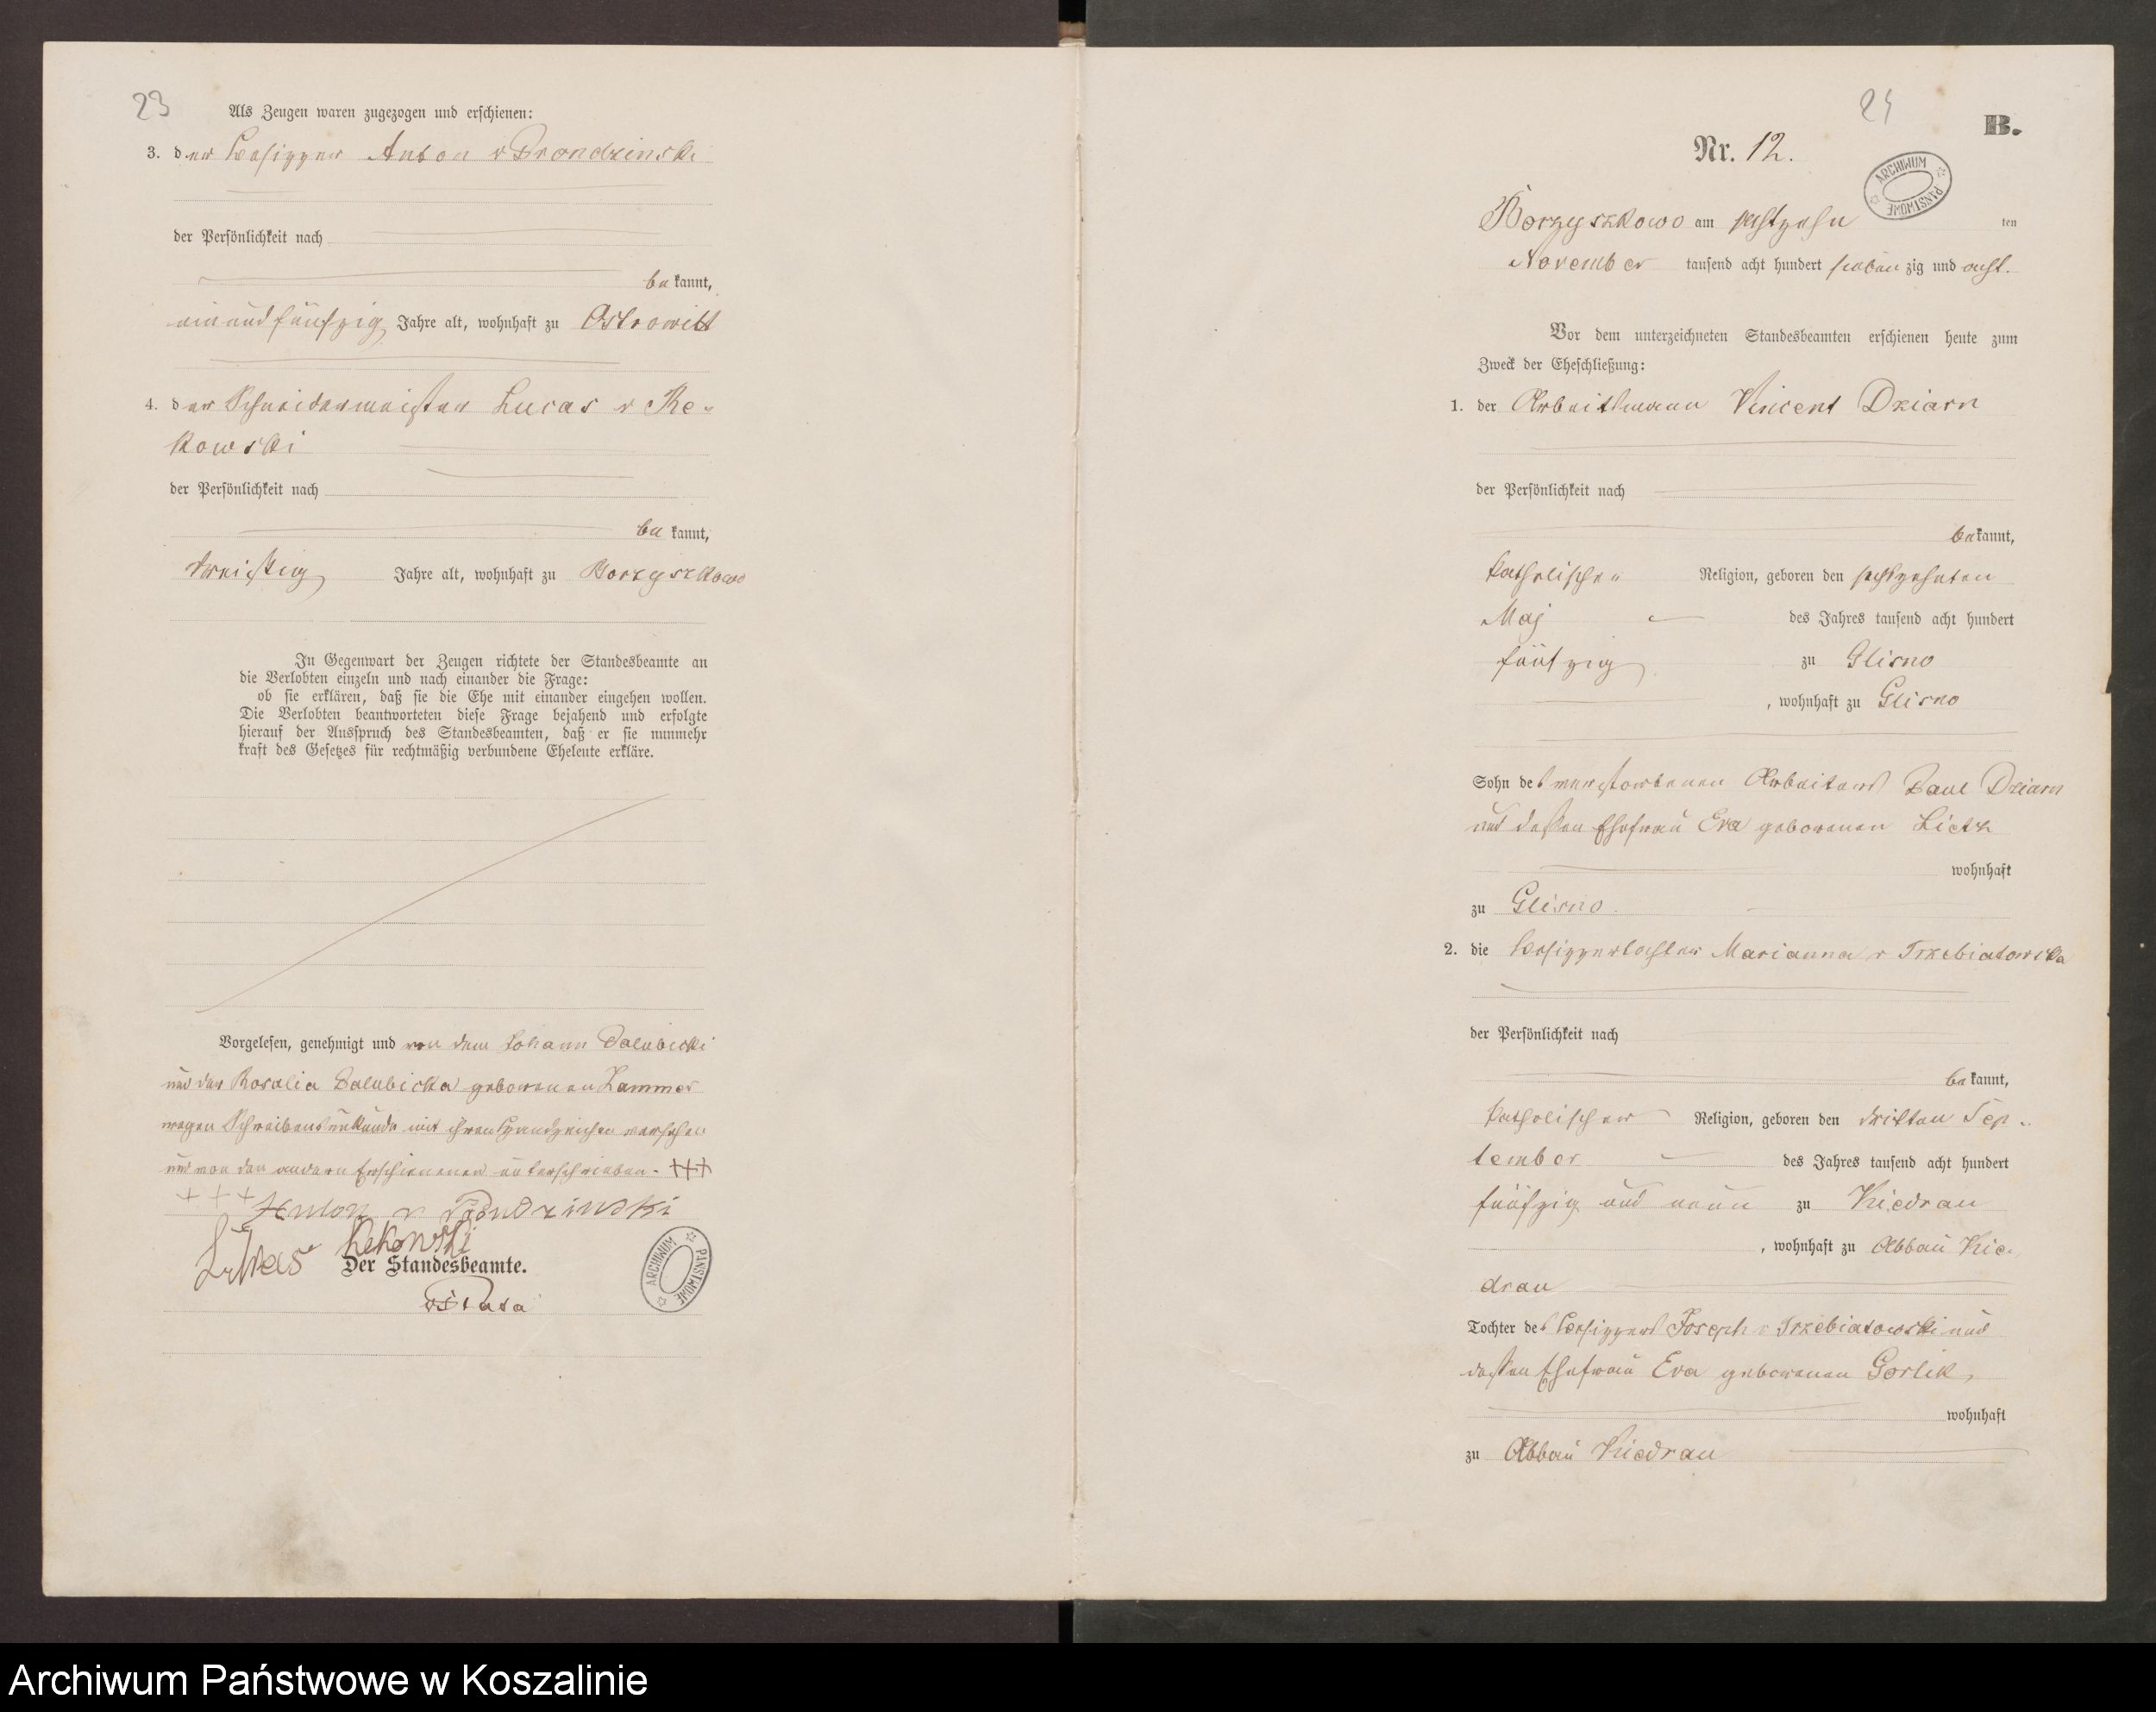 23
Als Zeugen waren zugezogen und erschienen:
3. der Besitzer Anton v Prondzinski
der Persönlichkeit nach
bekannt,
einundfünfzig Jahre alt, wohnhaft zu Ostrowitt
4. der Schneidermeister Lucas v Re-
kowski
der Persönlichkeit nach
bekannt,
dreißig Jahre alt, wohnhaft zu Borzyszkowo
In Gegenwart der Zeugen richtete der Standesbeamte an
die Verlobten einzeln und nach einander die Frage:
ob sie erklären, daß sie die Ehe mit einander eingehen wollen.
Die Verlobten beantworteten diese Frage bejahend und erfolgte
hierauf der Ausspruch des Standesbeamten, daß er sie nunmehr
kraft des Gesetzes für rechtmäßig verbundene Eheleute erkläre.
Vorgelesen, genehmigt und von dem Johann Palubicki
und der Rosalia Palubicka geborenen Lammer
wegen Schreibensunkunde mit ihren Handzeichen versehen
und von den andern Erschienenen unterschrieben. +++
+ + + Anton v Prondzinski
Lukas Rekowski
Der Standesbeamte.
ARCHIWUM PAŃSTWOWE
24
B.
Nr. 12.
ARCHIWUM PAŃSTWOWE
Borzyszkowo am sechszehn ten
November tausend acht hundert siebenzig und acht.
Vor dem unterzeichneten Standesbeamten erschienen heute zum
Zweck der Eheschließung:
1. der Arbeitsmann Vincent Dziarn
der Persönlichkeit nach
bekannt,
katholischer Religion, geboren den sechszehnten
Maj des Jahres tausend acht hundert
fünfzig zu Glisno
, wohnhaft zu Glisno
Sohn des verstorbenen Arbeiters Paul Dziarn
und dessen Ehefrau Eva geborenen Lietz
wohnhaft
zu Glisno.
2. die Besitzertochter Marianna v Trzebiatowska
der Persönlichkeit nach
bekannt,
katholischer Religion, geboren den dritten Sep-
tember des Jahres tausend acht hundert
fünfzig und neun zu Kiedrau
, wohnhaft zu Abbau Kie-
drau
Tochter des Besitzers Joseph v Trzebiatowski und
dessen Ehefrau Eva geborenen Gorlik,
wohnhaft
zu Abbau Kiedrau
Archiwum Państwowe w Koszalinie